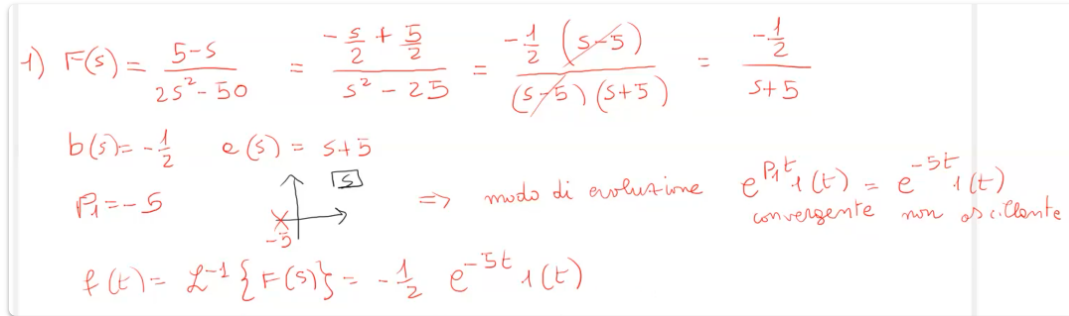 1) F(s) = (5-s)/(2s²-50) = (-s/2 + 5/2)/(s² - 25) = (-1/2 (s-5))/((s-5)(s+5)) = (-1/2)/(s+5)
b(s) = -1/2 a(s) = s+5
P₁ = -5 -5 S ⇒ modo di evoluzione e^(P₁t) 1(t) = e^(-5t) 1(t)
convergente non oscillante
f(t) = ℒ⁻¹{F(s)} = -1/2 e^(-5t) 1(t)